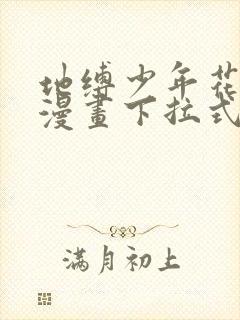 地缚少年花
漫畫下拉式
满月初上